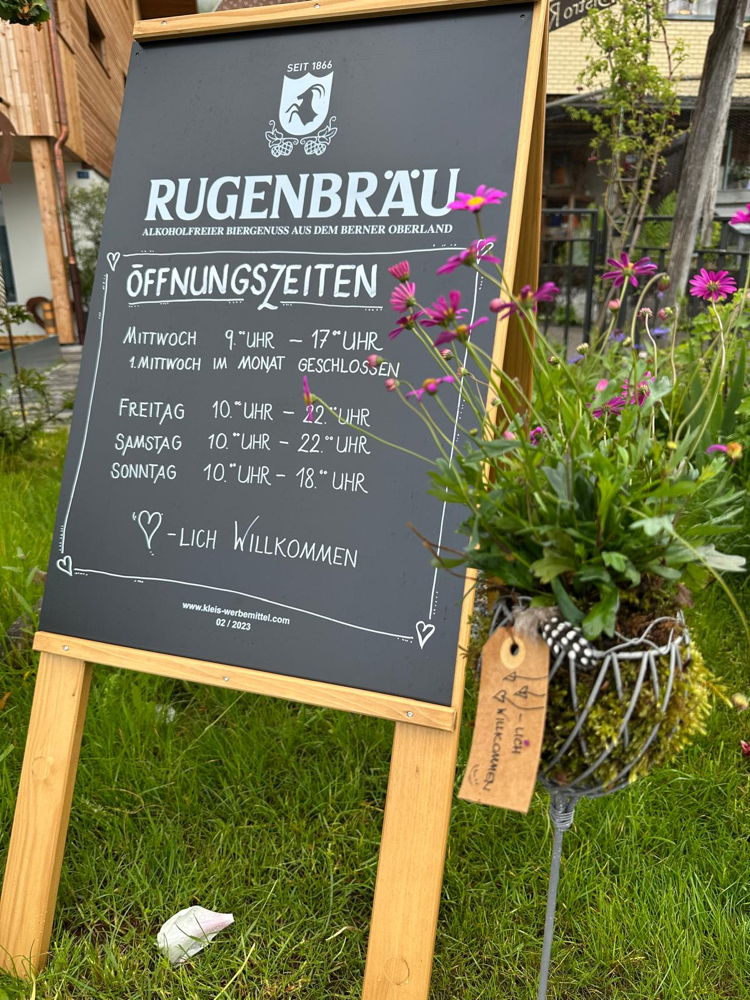 Bistro R
SEIT 1866
RUGENBRÄU
ALKOHOLFREIER BIERGENUSS AUS DEM BERNER OBERLAND
ÖFFNUNGSZEITEN
MITTWOCH 9.⁰⁰ UHR – 17.⁰⁰ UHR
1. MITTWOCH IM MONAT GESCHLOSSEN
FREITAG 10.⁰⁰ UHR – 22.⁰⁰ UHR
SAMSTAG 10.⁰⁰ UHR – 22.⁰⁰ UHR
SONNTAG 10.⁰⁰ UHR – 18.⁰⁰ UHR
"♡"-LICH WILLKOMMEN
www.kleis-werbemittel.com
02 / 2023
-LICH
WILLKOMMEN